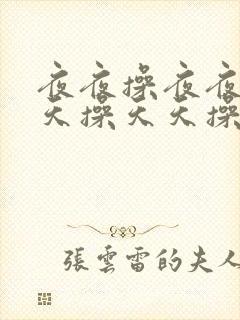 夜夜操夜夜
天操天天操
張雲雷的夫人